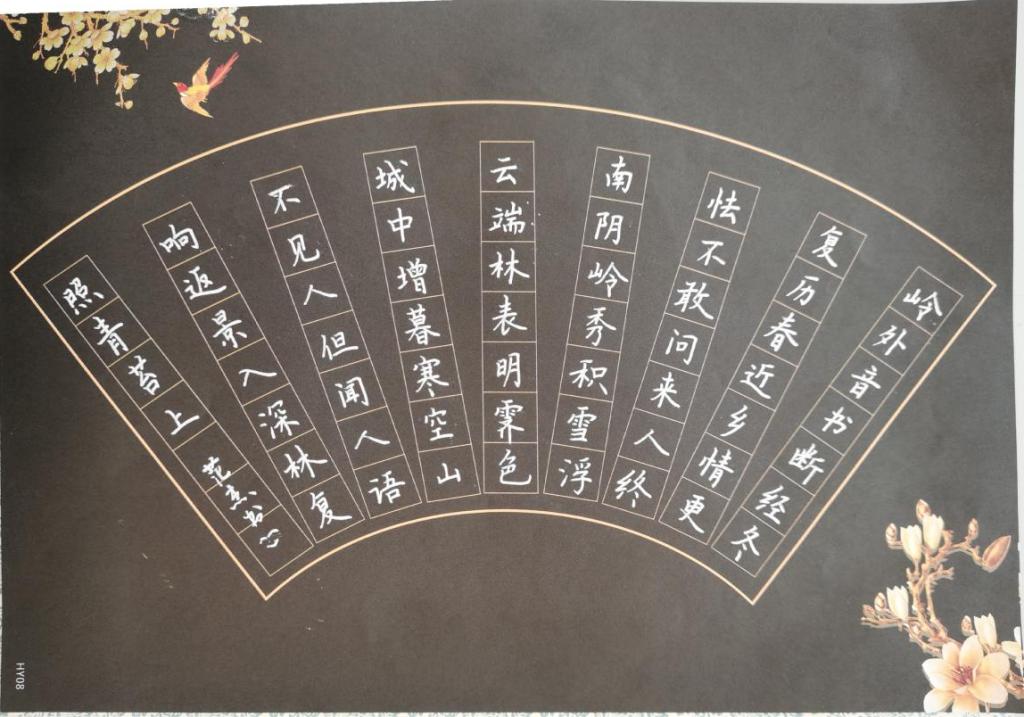 岭外音书断经冬
复历春近乡情更
怯不敢问来人终
南阴岭秀积雪浮
云端林表明霁色
城中增暮寒空山
不见人但闻人语
响返景入深林复
照青苔上
HY08